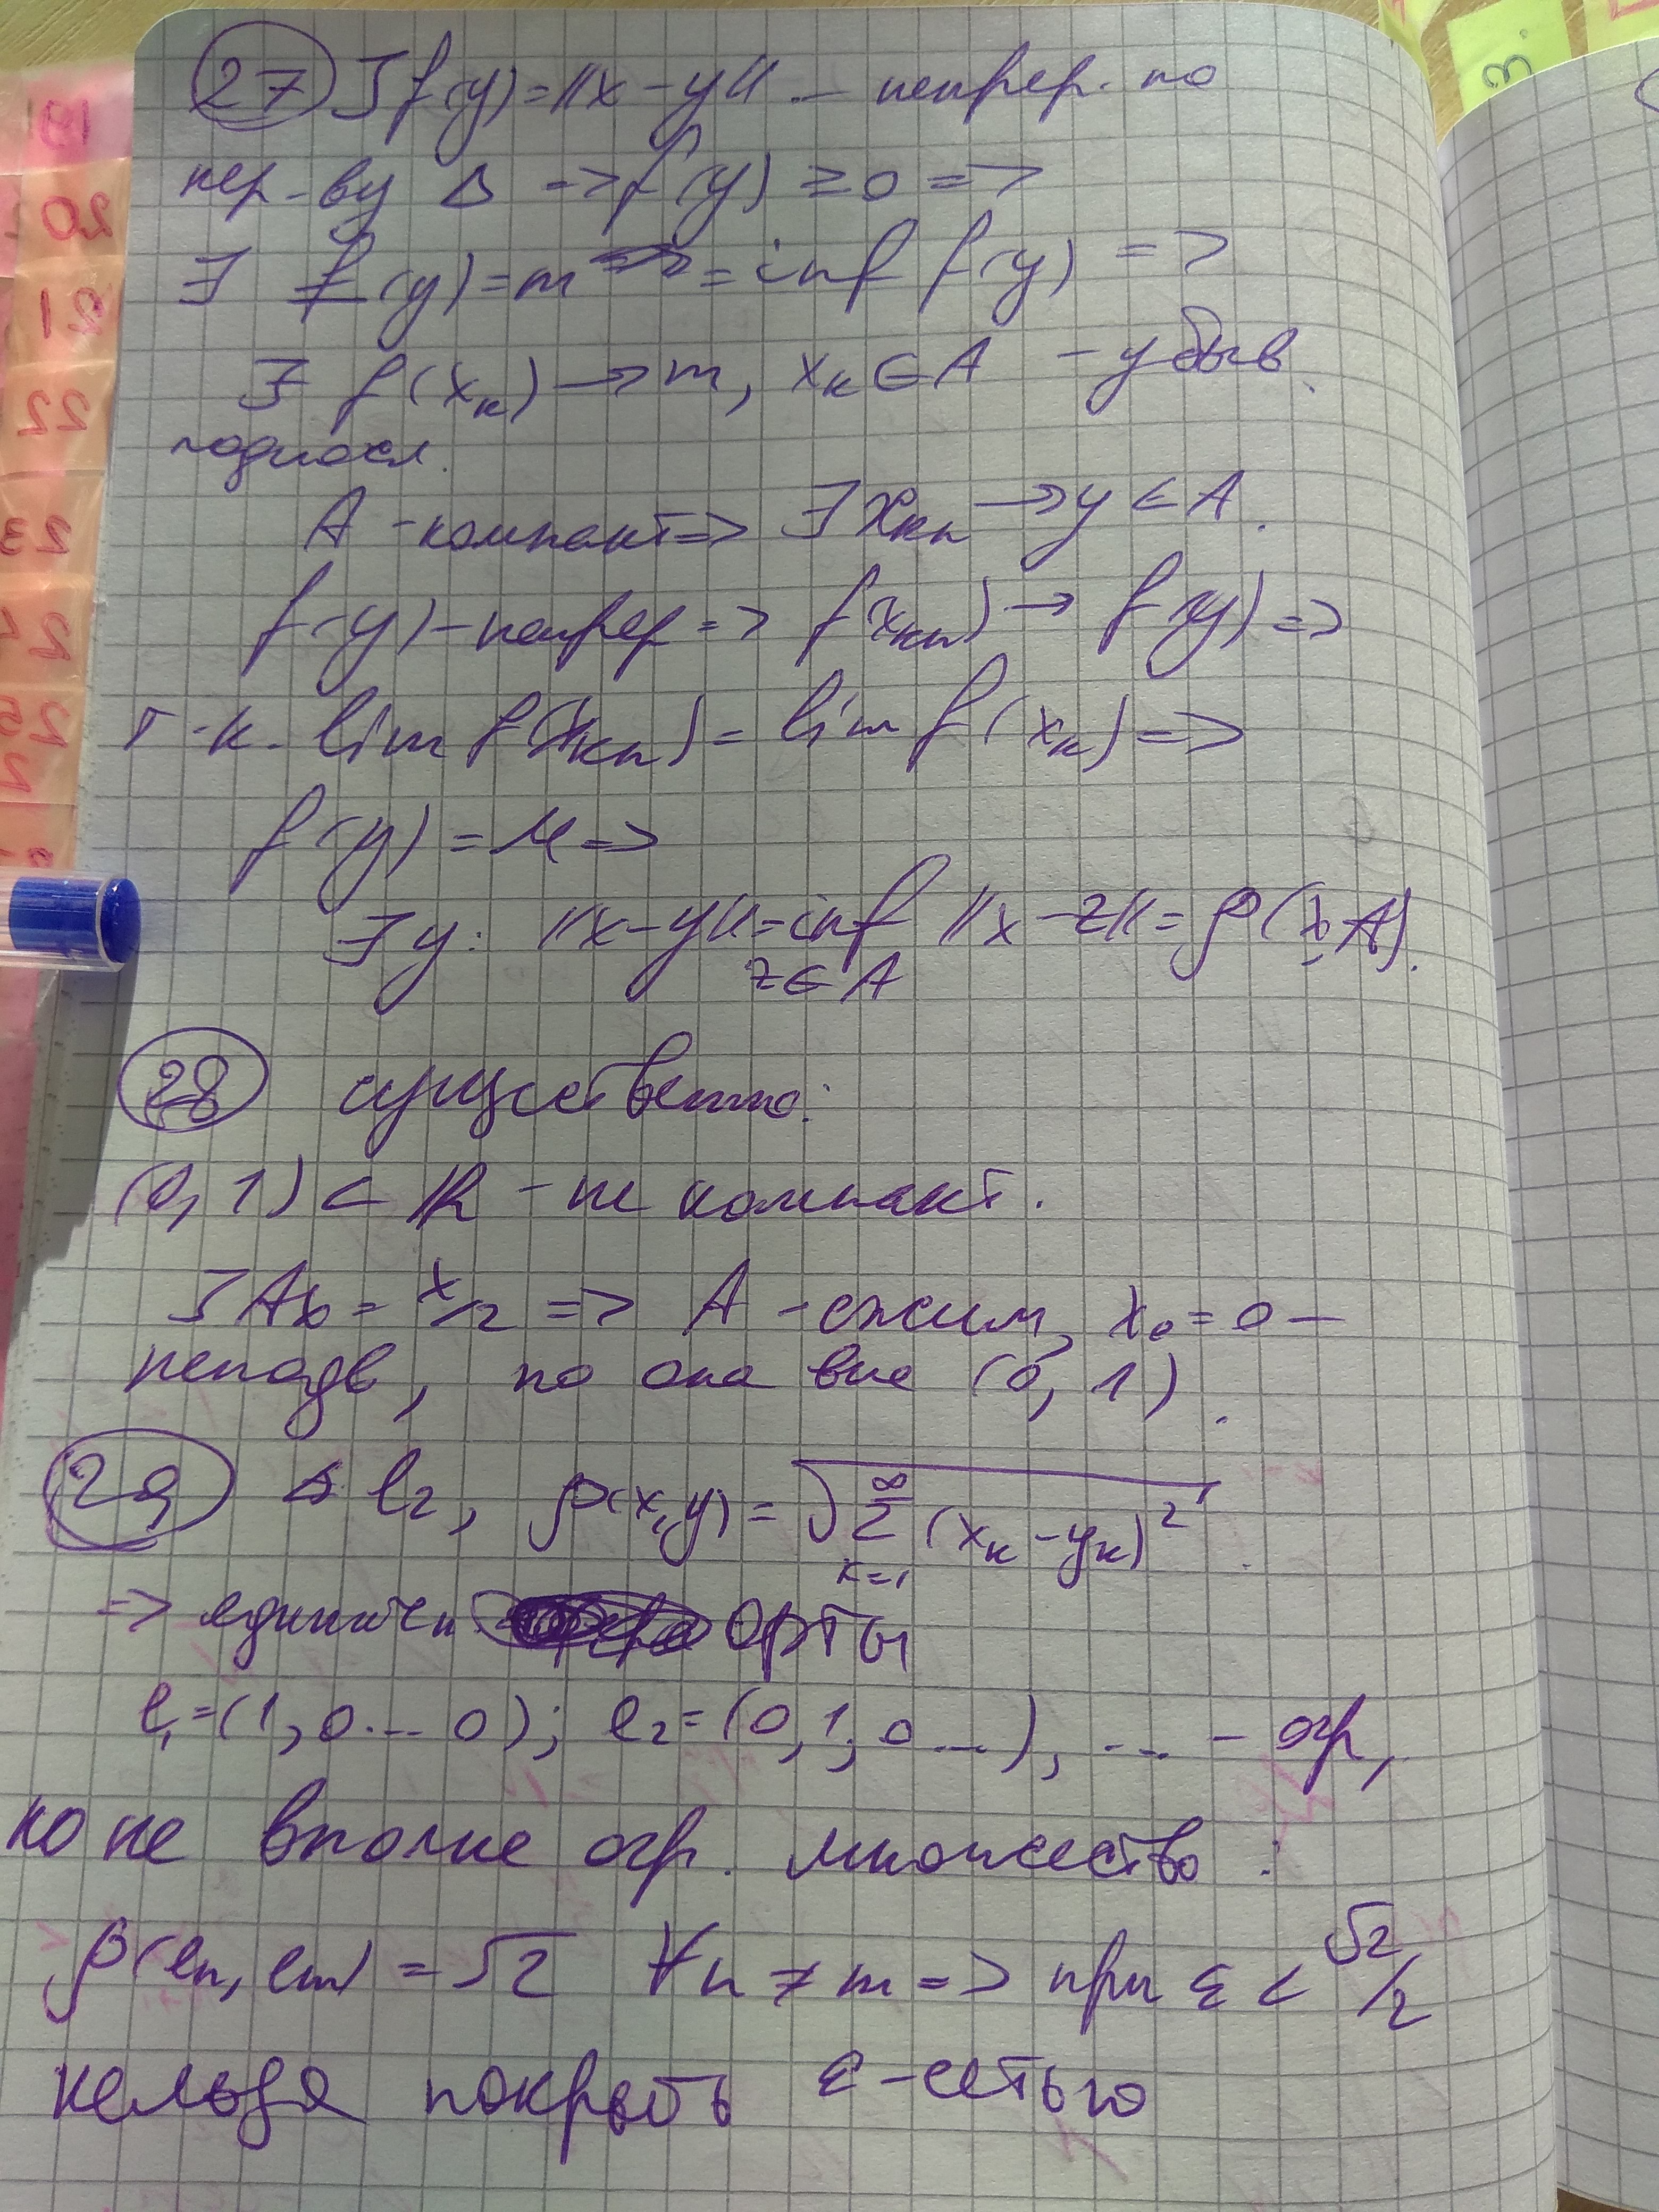 27 ] f(y) = ||x - y|| - непрер. по
нер-ву Δ => f(y) ≥ 0 =>
∃ f(y) = m = inf f(y) =>
∃ f(x_k) → m, x_k ∈ A - убыв.
подпосл.
A - компакт => ∃ x_kn → y ∈ A.
f(y) - непрер => f(x_kn) → f(y) =>
т-к. lim f(x_kn) = lim f(x_k) =>
f(y) = м =>
∃ y: ||x - y|| = inf ||x - z|| = ρ(x, A).
z ∈ A
28 существенно:
(0, 1) ⊂ ℝ - не компакт.
] Ax = x/2 => A - сжим, x₀ = 0 -
неподв, но она вне (0, 1).
29 l₂, ρ(x, y) = √(∑_{k=1}^∞ (x_k - y_k)²)
=> единичн. орты
e₁ = (1, 0 ... 0); e₂ = (0, 1, 0 ...), ... - огр,
но не вполне огр. множество:
ρ(e_n, e_m) = √2 ∀n ≠ m => при ε < √2/2
нельзя покрыть ε-сетью
3.
19
20
21
22
23
2
25
2